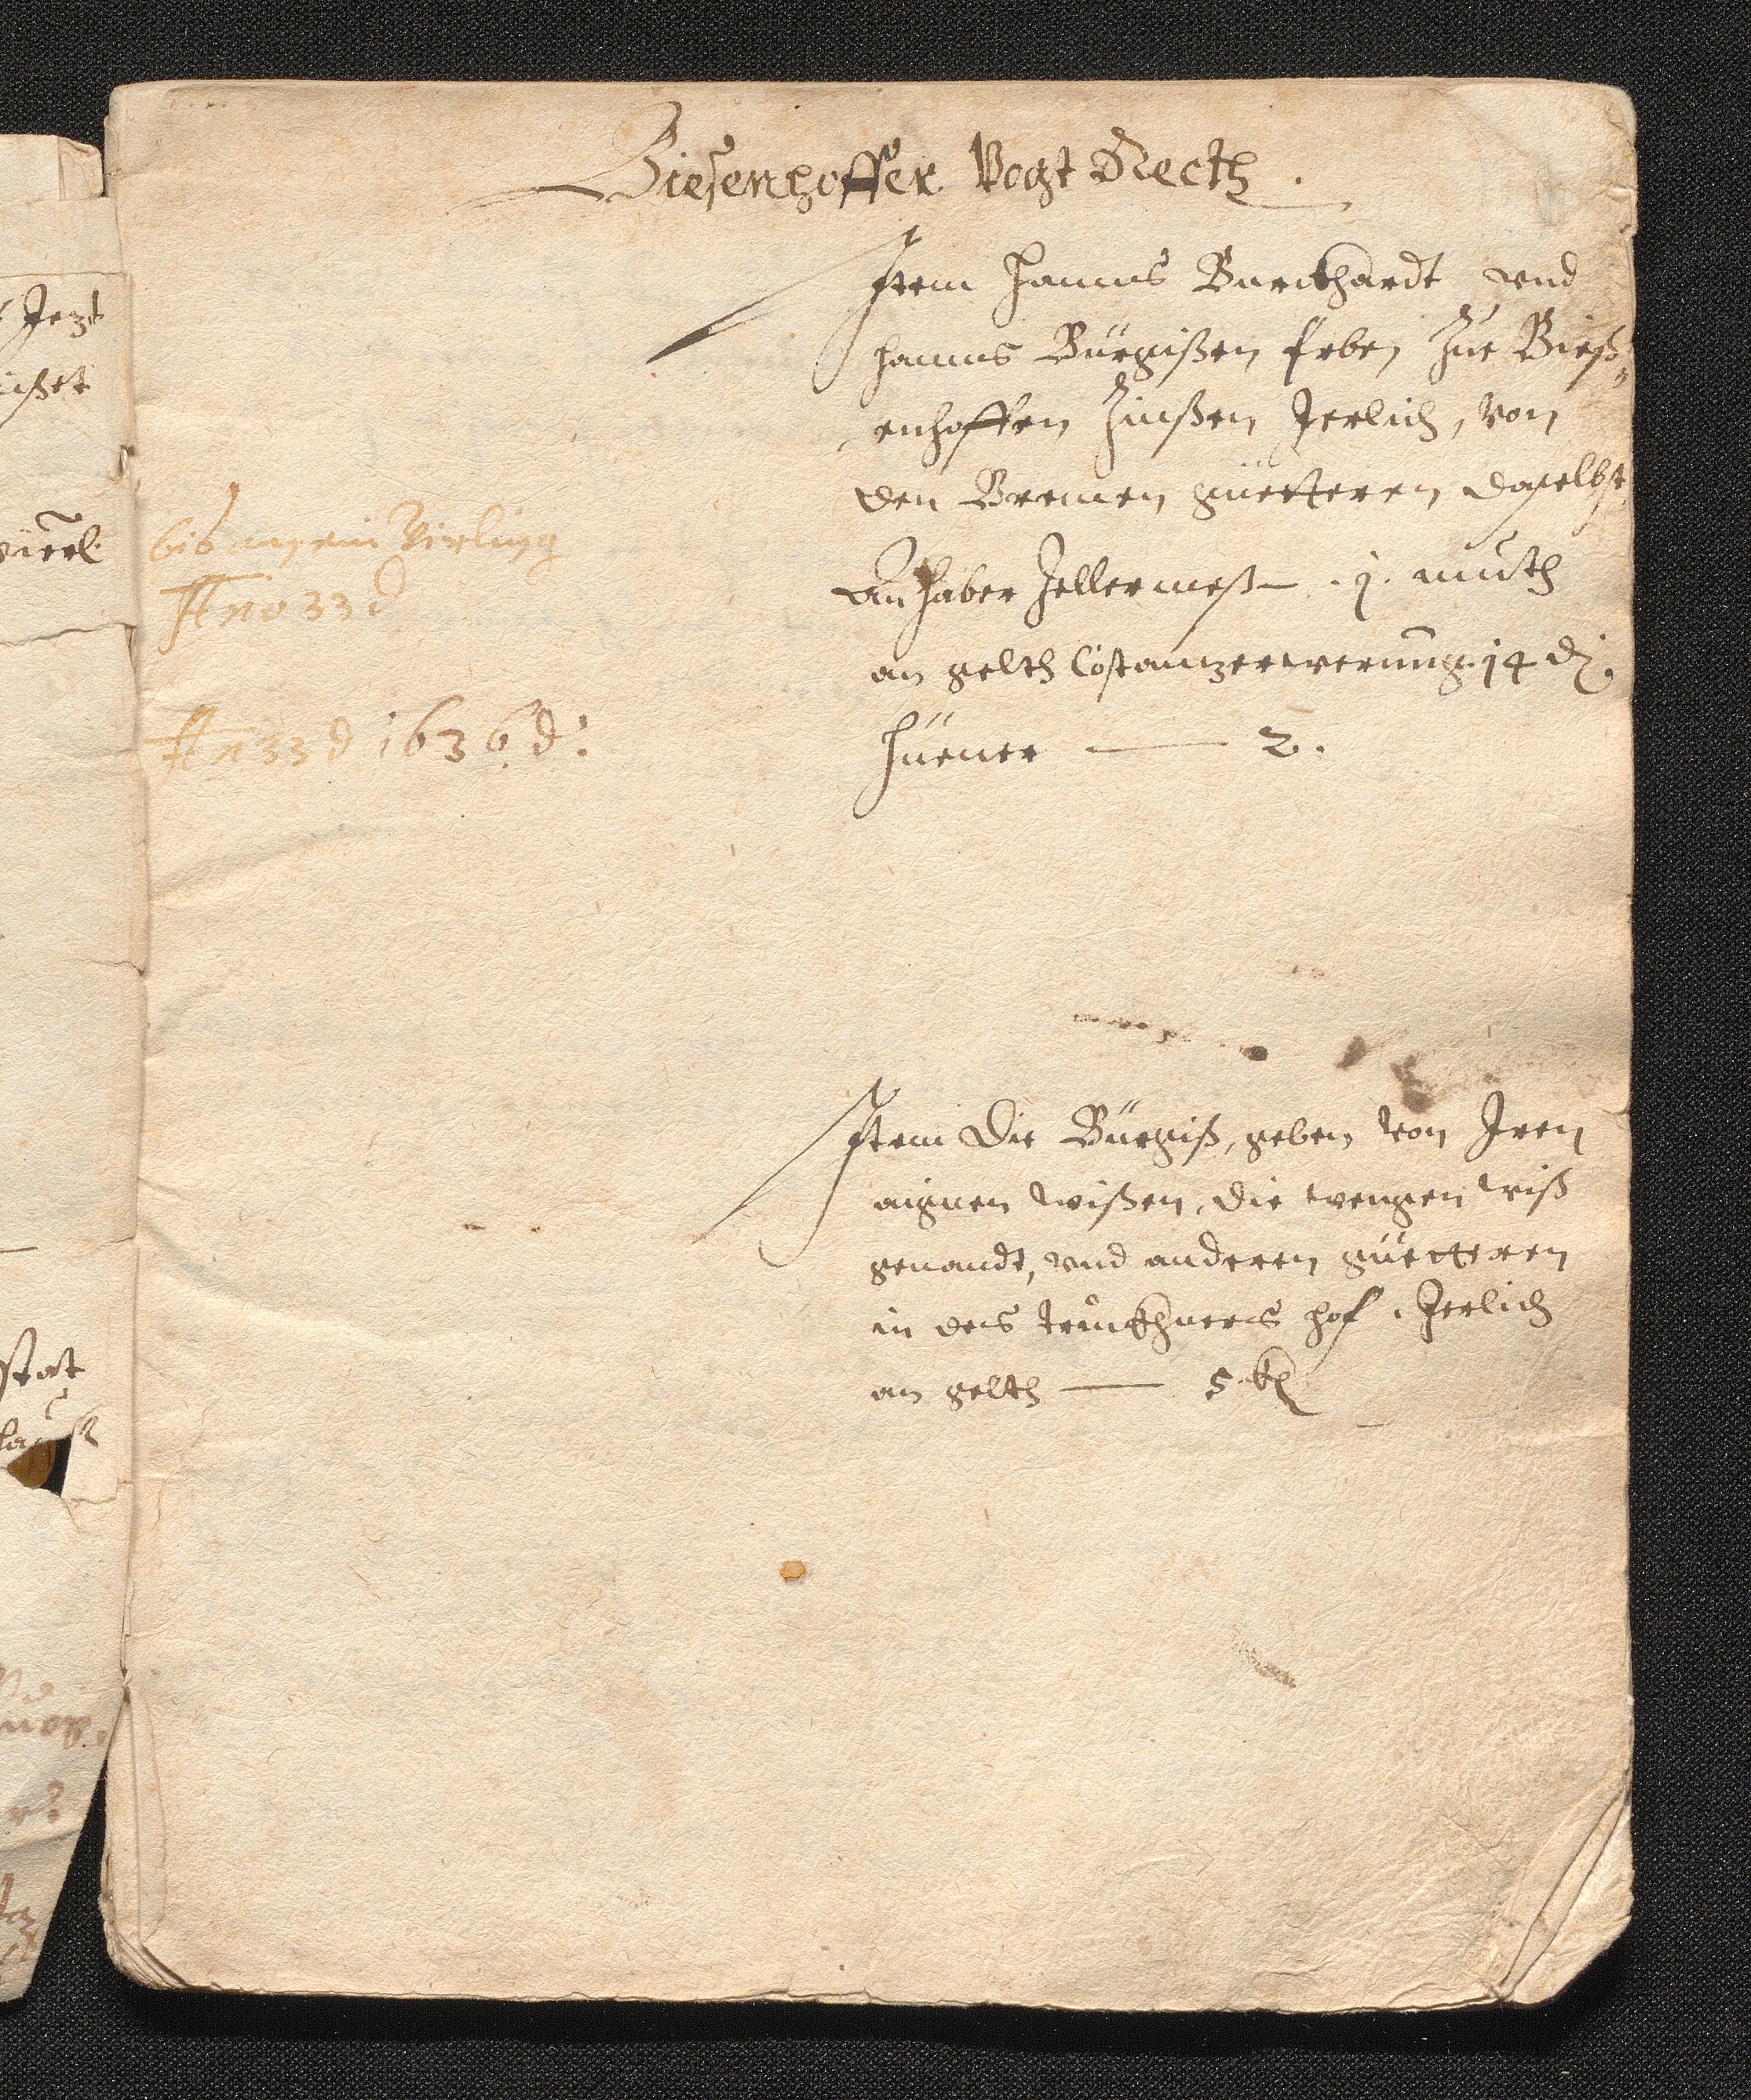 Biesenhoffer Vogt Recth.
Item Hanns Burckhardt vnd
Hanns Bürgißen Erben zue Bieß„
enhoffen Zinßen Jerlich, von
den Bremen güetteren daselbst
An Haber Zellermeß — . j . muth
an gelth Costanzerwerung . 14 d.
Hüener — 2.
bis an ein Virling
Ano 33 d
An 33 d 1636 d:
Item Die Bürgiß, geben von Iren
aignen wißen, die wengen wiß
genandt, vnd anderen güetteren
in des hof . Jerlich
an gelth — 5 ß
Jezt
vierl.
stat